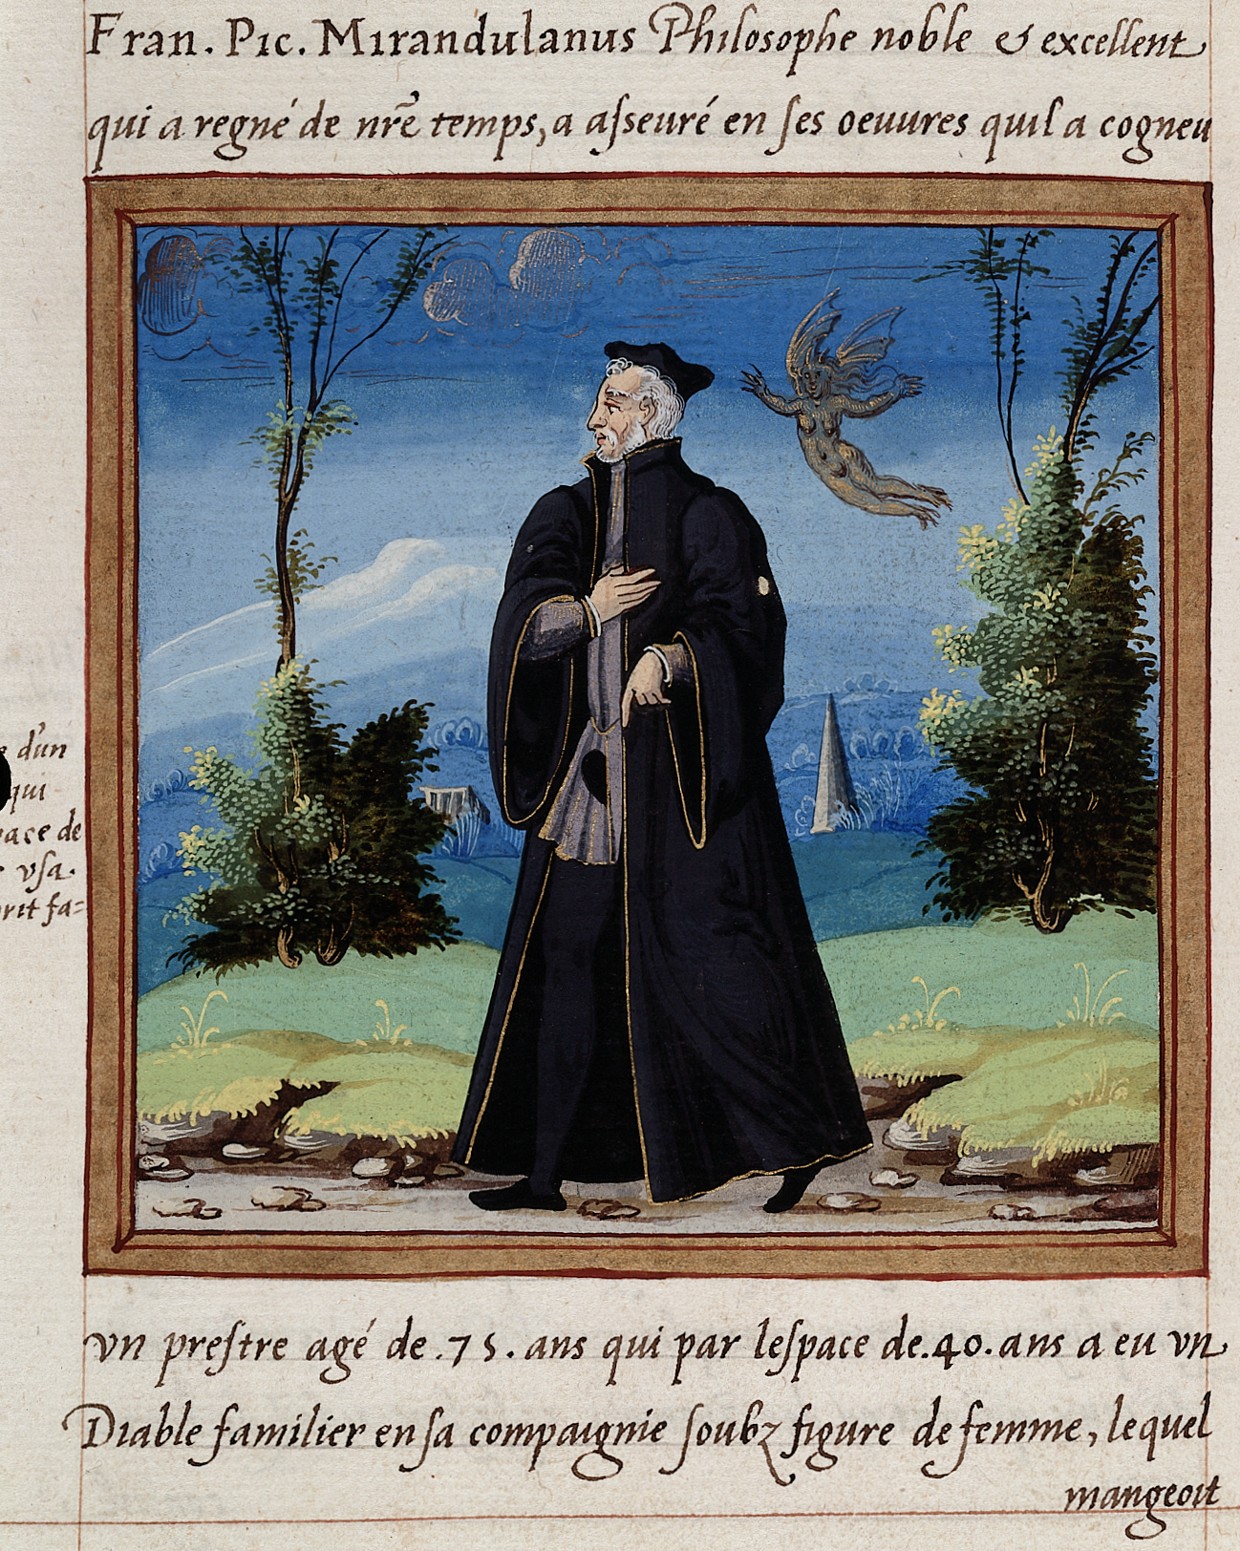 Fran. Pic. Mirandulanus Philosophe noble & excellent
qui a regné de nr̃e temps, a aſseuré en ſes oeuures quil a cogneu
d'un
qui
de
vſa.
fa=
vn preſtre agé de .75. ans qui par leſpace de .40. ans a eu vn
Diable familier en ſa compaignie ſoubz figure de femme, lequel
mangeoit